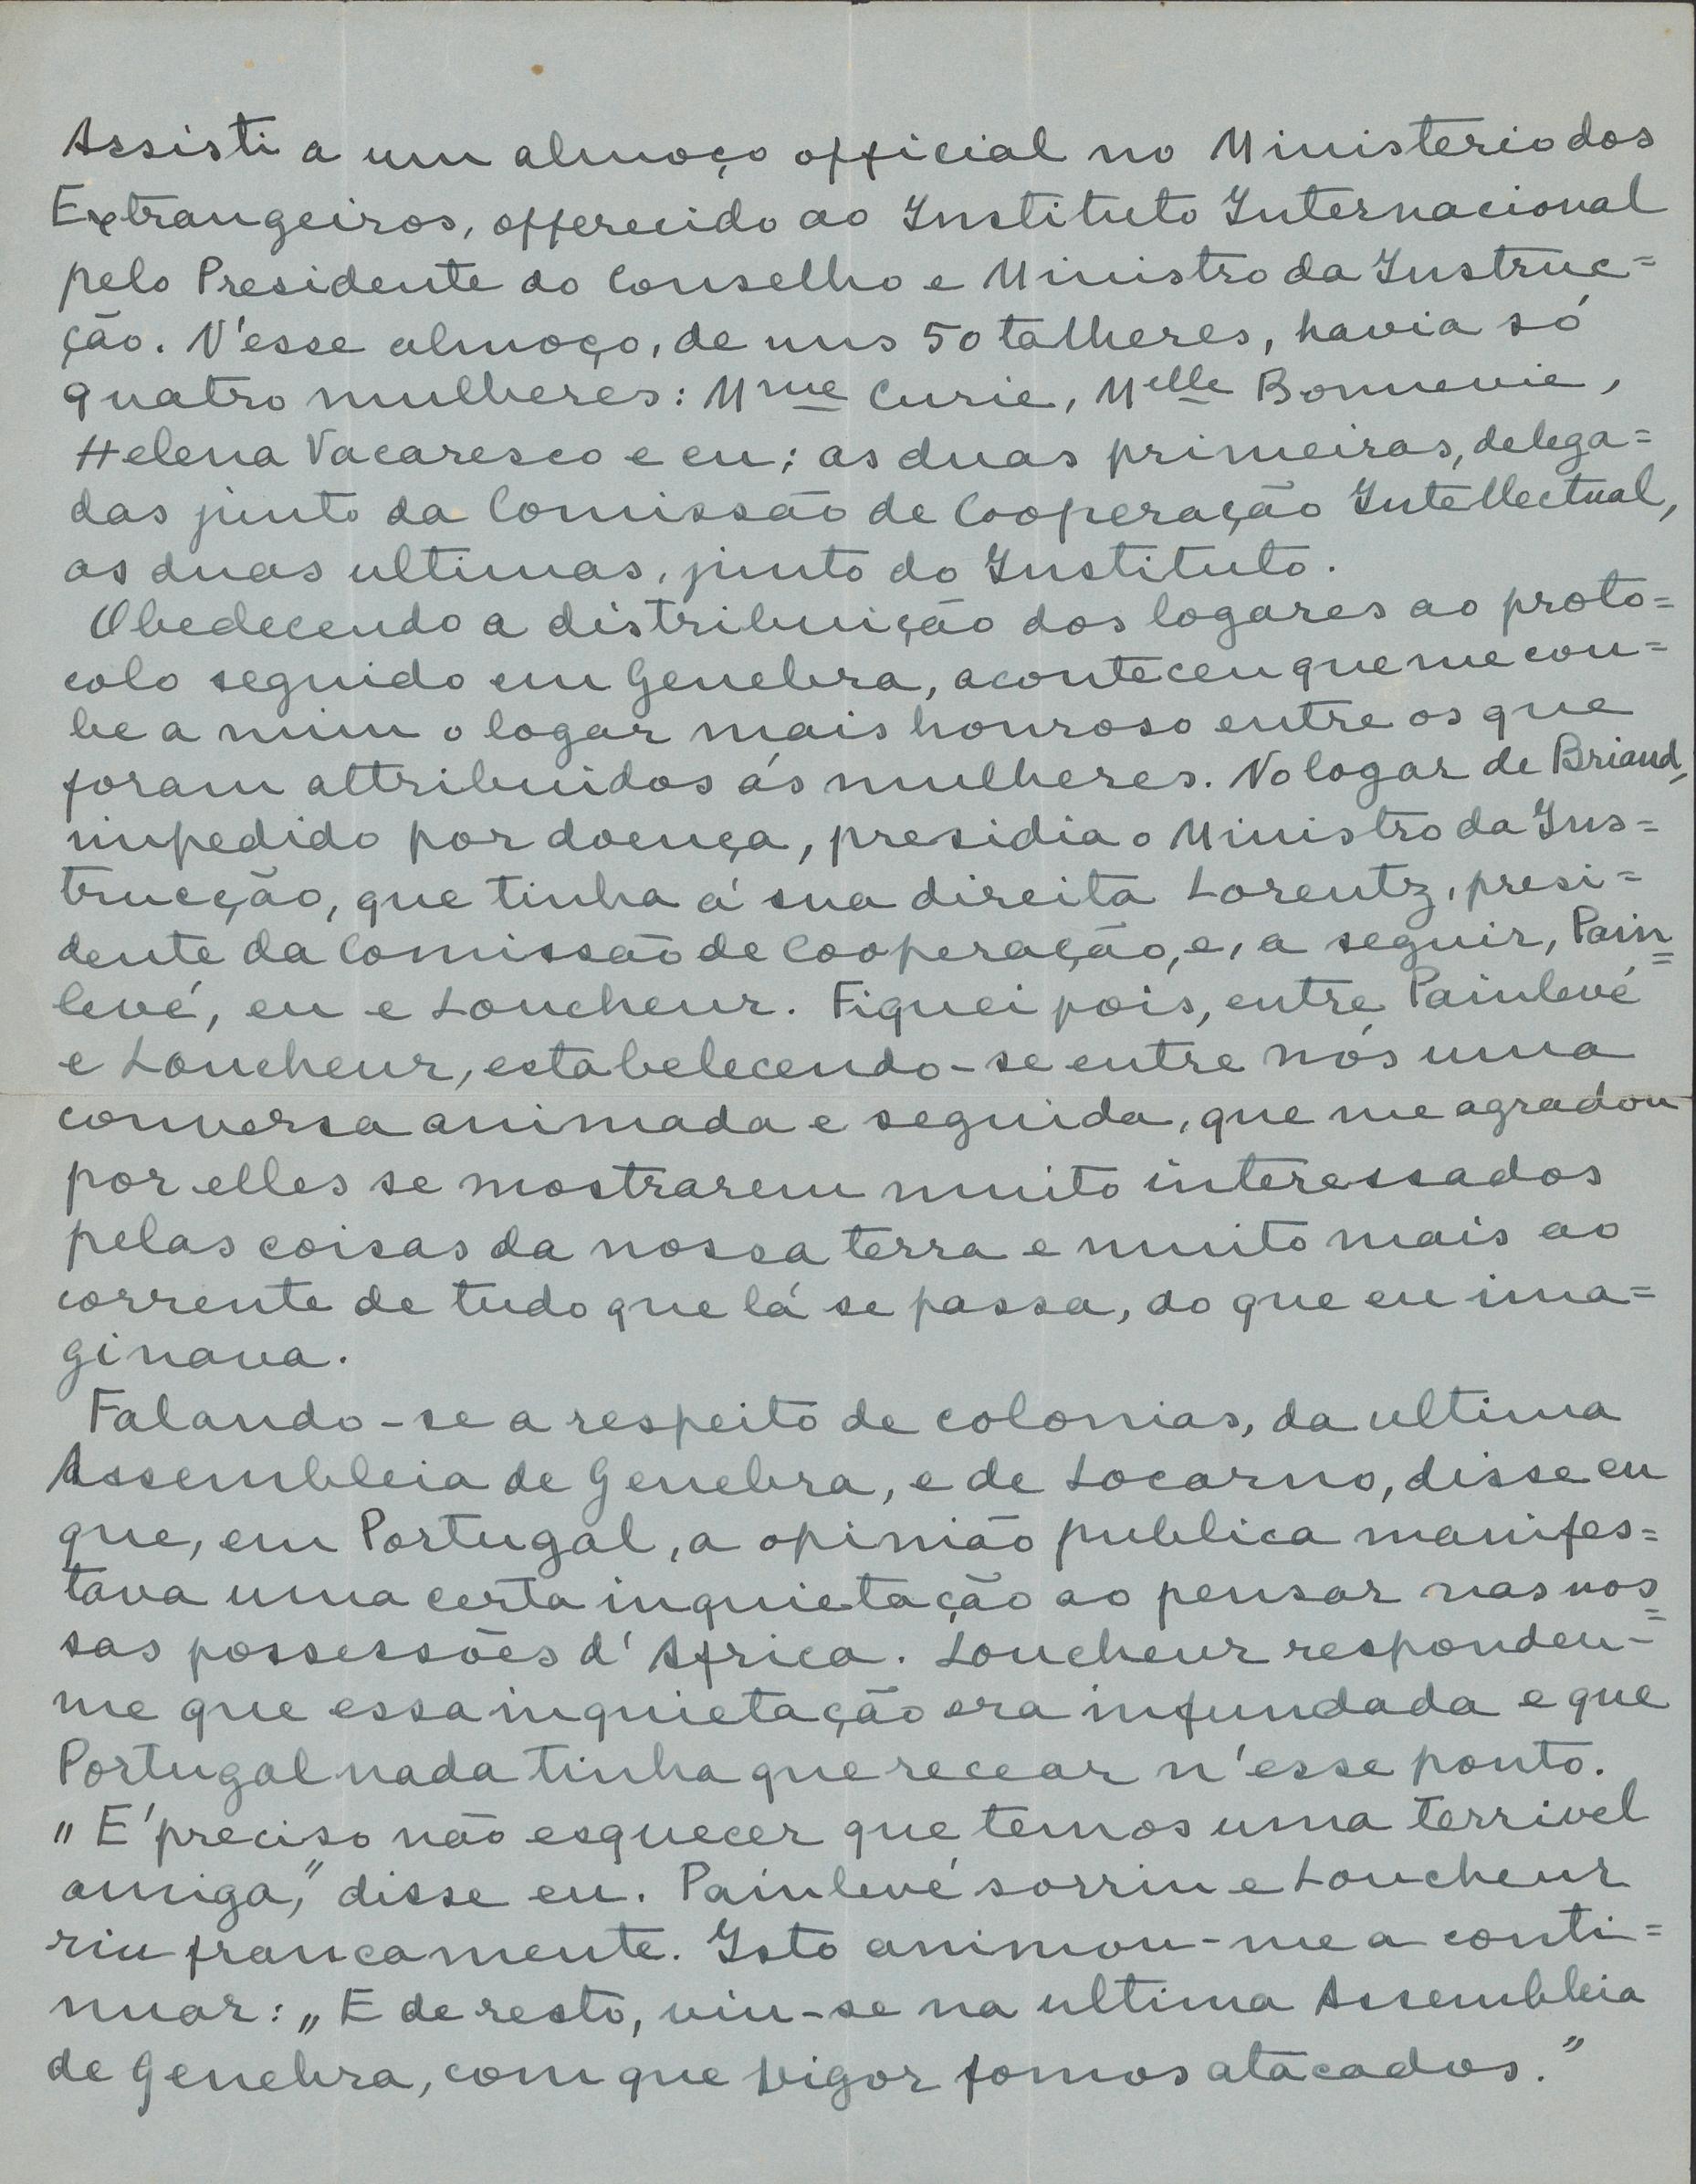 Assisti a um almoço official no Ministerio dos
Extrangeiros, offerecido ao Instituto Internacional
pelo Presidente do Conselho e Ministro da Instruc=
ção. N'esse almoço, de uns 50 talheres, havia só
quatro mulheres: Mme Curie, Melle Bonnevie,
Helena Vacaresco e eu; as duas primeiras, delega=
das junto da Comissão de Cooperação Intellectual,
as duas ultimas, junto do Instituto.
Obedecendo a distribuição dos logares ao proto=
colo seguido em Genebra, aconteceu que me cou=
be a mim o logar mais honroso entre os que
foram attribuidos ás mulheres. No logar de Briand,
impedido por doença, presidia o Ministro da Ins=
trucção, que tinha á sua direita Lorentz, presi=
dente da Comissão de Cooperação, e, a seguir, Pain=
levé, eu e Loucheur. Fiquei pois, entre Painlevé
e Loucheur, estabelecendo-se entre nós uma
conversa animada e seguida, que me agradou
por elles se mostrarem muito interessados
pelas coisas da nossa terra e muito mais ao
corrente de tudo que lá se passa, do que eu ima=
ginava.
Falando-se a respeito de colonias, da ultima
Assembleia de Genebra, e de Locarno, disse eu
que, em Portugal, a opinião publica manifes=
tava uma certa inquietação ao pensar nas nos=
sas possessões d'Africa. Loucheur respondeu-
me que essa inquietação era infundada e que
Portugal nada tinha que recear n'esse ponto.
„E' preciso não esquecer que temos uma terrivel
amiga," disse eu. Painlevé sorriu e Loucheur
riu francamente. Isto animou-me a conti=
nuar: „E de resto, viu-se na ultima Assembleia
de Genebra, com que vigor fomos atacados."